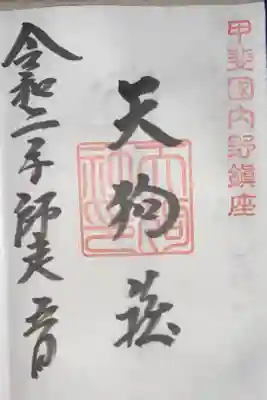 甲斐國内野鎮座
天狗
令和二年師走五日